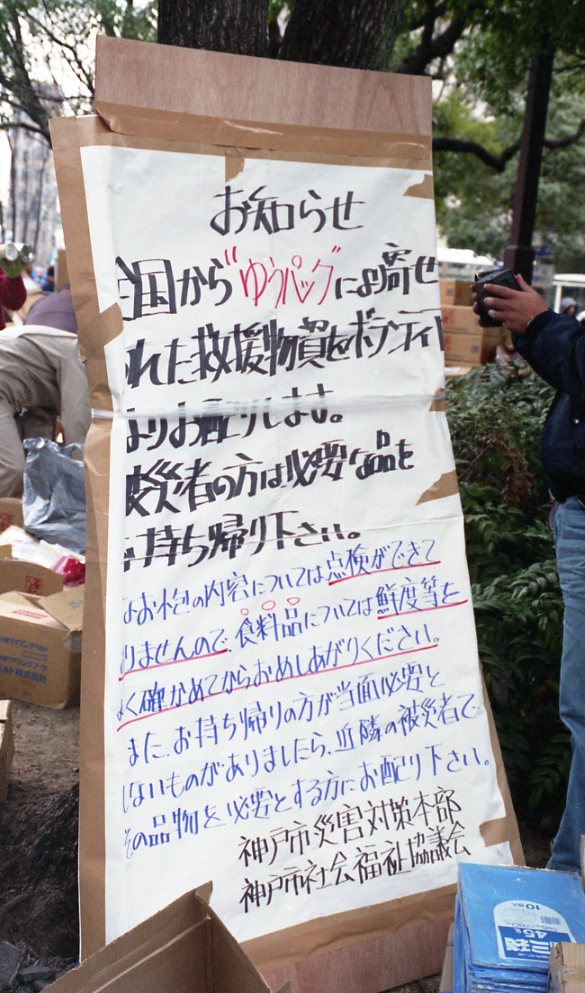 お知らせ
全国から"ゆうパック"により寄せ
られた救援物資をボランティ
よりお配りします。
被災者の方は必要な品を
お持ち帰り下さい。
なお、包の内容については点検ができて
おりませんので、食料品については鮮度等を
よく確かめてからおめしあがりください。
また、お持ち帰りの方が当面必要と
しないものがありましたら、近隣の被災者で
その品物を必要とする方にお配り下さい。
神戸市災害対策本部
神戸市社会福祉協議会
10枚入
45